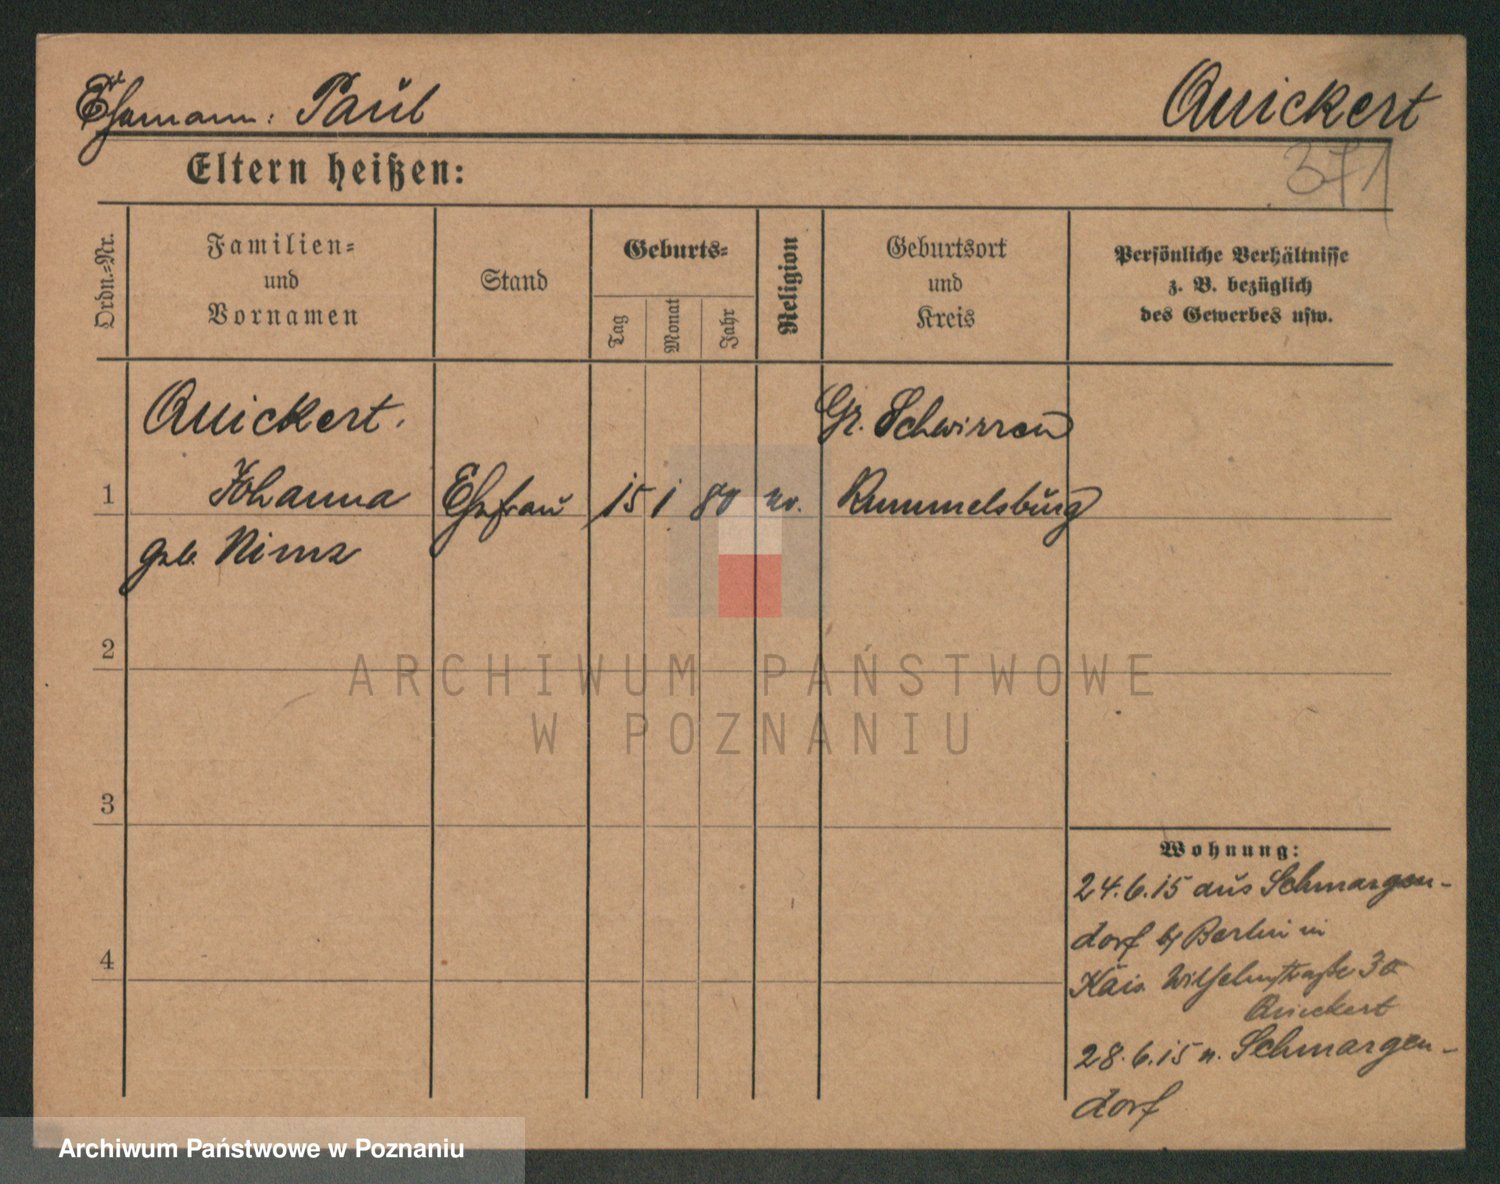 Ehemann: Paul Quickert
371
Eltern heißen:
Ordn.=Nr.
Familien=
und
Vornamen
Stand
Geburts=
Tag
Monat
Jahr
Religion
Geburtsort
und
Kreis
Persönliche Verhältnisse
z. B. bezüglich
des Gewerbes usw.
Quickert.
Gr. Schwirsen
1 Johanna Ehefrau 15 1 80 ev. Rummelsburg
geb. Nimz
2
3
4
Wohnung:
24.6.15 aus Schmargen-
dorf b/ Berlin in
Kais. Wilhelmstraße 30
Quickert
28.6.15 n. Schmargen-
dorf
ARCHIWUM PAŃSTWOWE
W POZNANIU
Archiwum Państwowe w Poznaniu